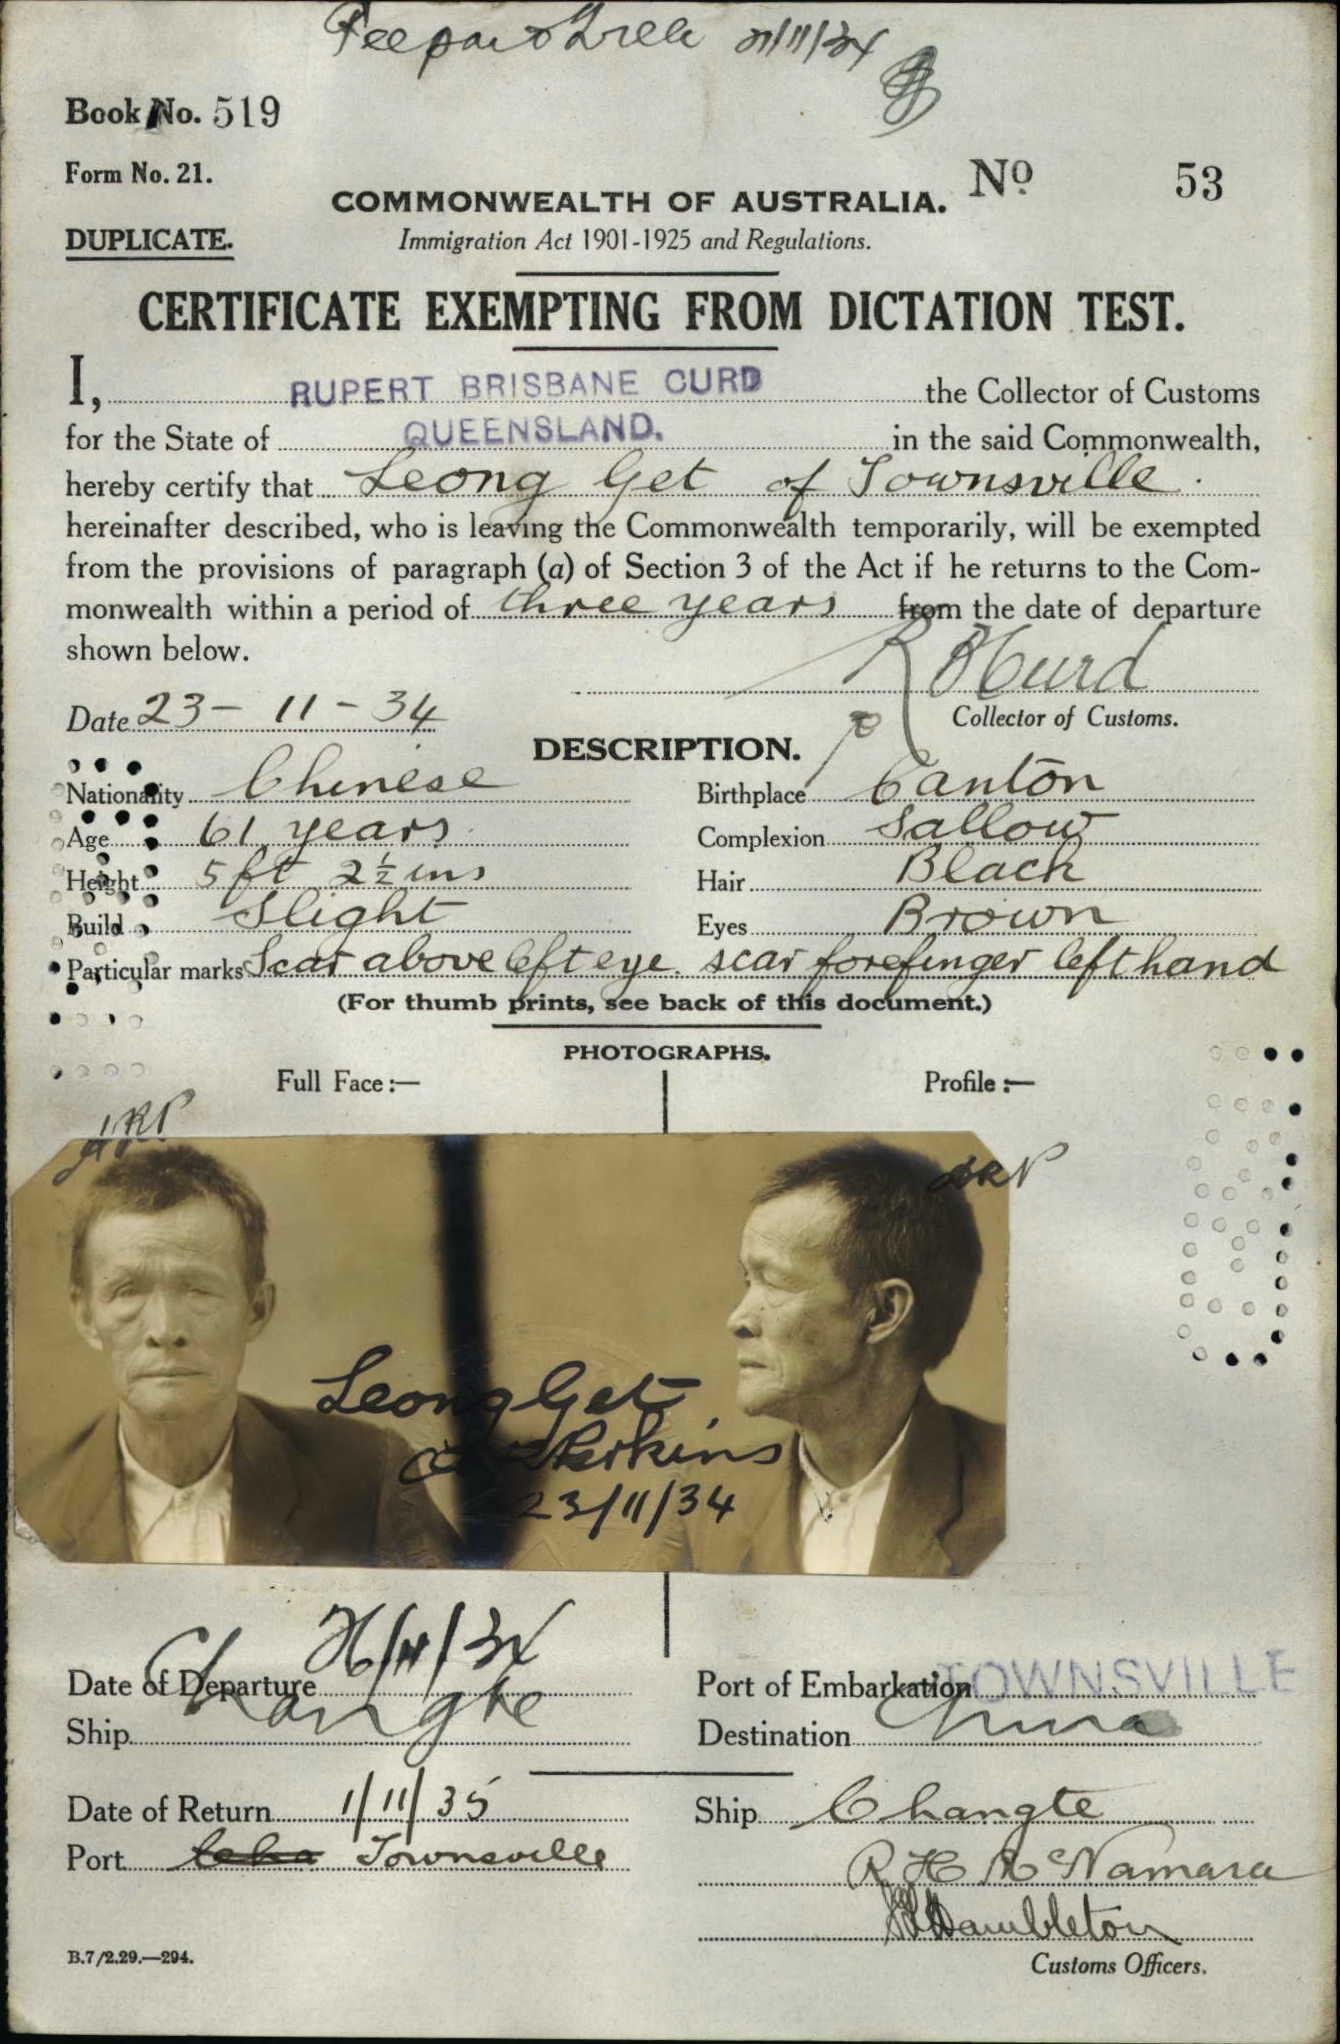 Fee paid T'ville 21/11/34
Book No. 519
Form No. 21.
COMMONWEALTH OF AUSTRALIA. No 53
DUPLICATE.
Immigration Act 1901-1925 and Regulations.
CERTIFICATE EXEMPTING FROM DICTATION TEST.
I, RUPERT BRISBANE CURD the Collector of Customs
for the State of QUEENSLAND. in the said Commonwealth,
hereby certify that Leong Get of Townsville.
hereinafter described, who is leaving the Commonwealth temporarily, will be exempted
from the provisions of paragraph (a) of Section 3 of the Act if he returns to the Com-
monwealth within a period of three years from the date of departure
shown below.
R B Curd
Date 23-11-34 Collector of Customs.
DESCRIPTION.
Nationality Chinese Birthplace Canton
Age 61 years. Complexion Sallow
Height 5 ft 2½ ins Hair Black
Build Slight Eyes Brown
Particular marks Scar above left eye. scar forefinger left hand
(For thumb prints, see back of this document.)
PHOTOGRAPHS.
Full Face:— Profile:—
Leong Get
Perkins
23/11/34
Date of Departure 26/11/34 Port of Embarkation TOWNSVILLE
Ship Changte Destination China
Date of Return 1/11/35 Ship Changte
Port Townsville
R H McNamara
Hambleton
B.7/2.29.—294. Customs Officers.